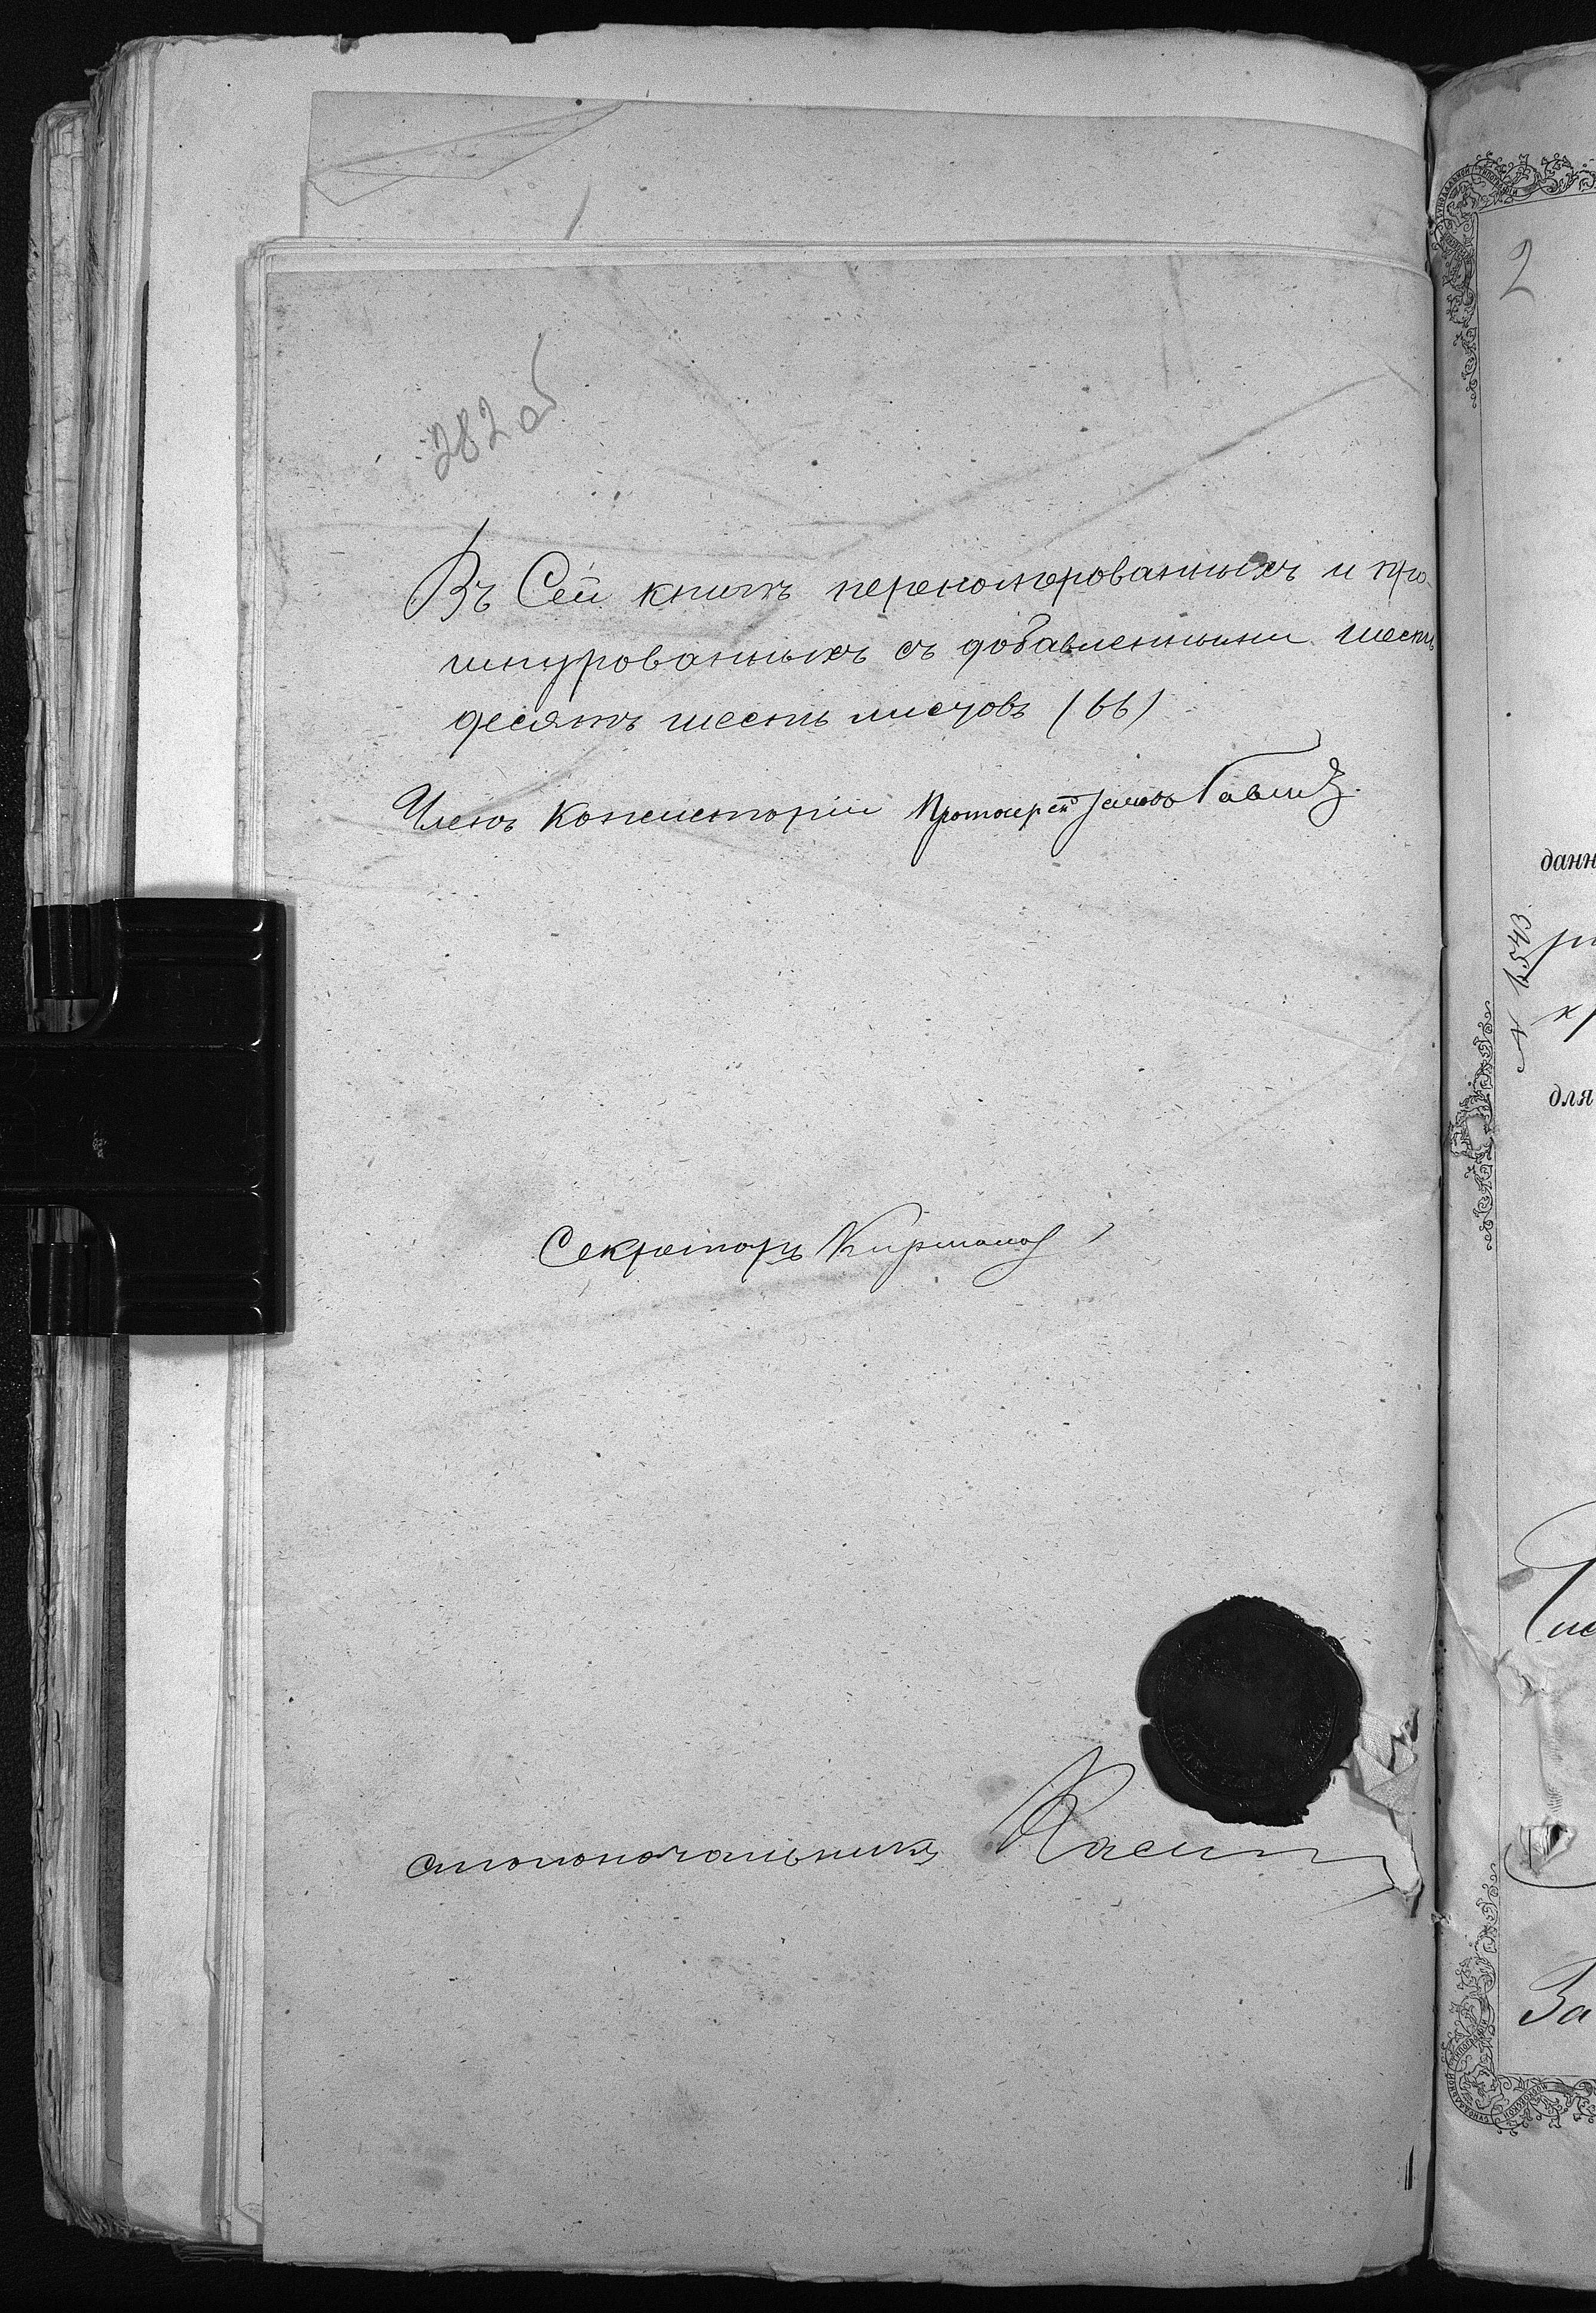 282 об
Въ Сей книгѣ переномерованныхъ и про-
шнурованныхъ съ добавленными шесть
десятъ шесть листовъ (66)
Членъ Консисторіи Протоіерей
Секретарь
столоначальникъ
2
данн
№ 1543
для
За